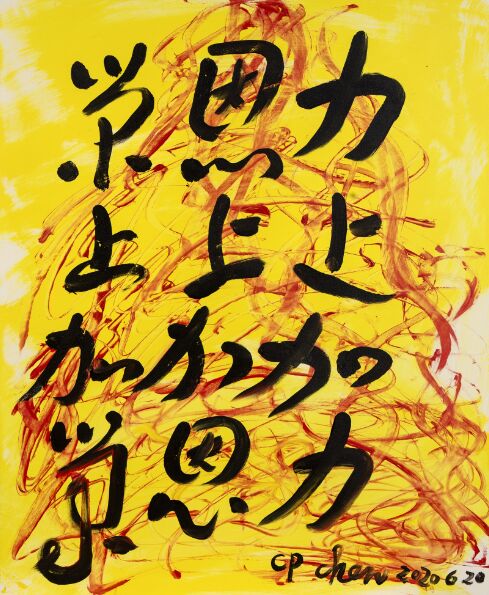 力上加力
恩上加恩
榮上加榮
CP chen 2020 6 20